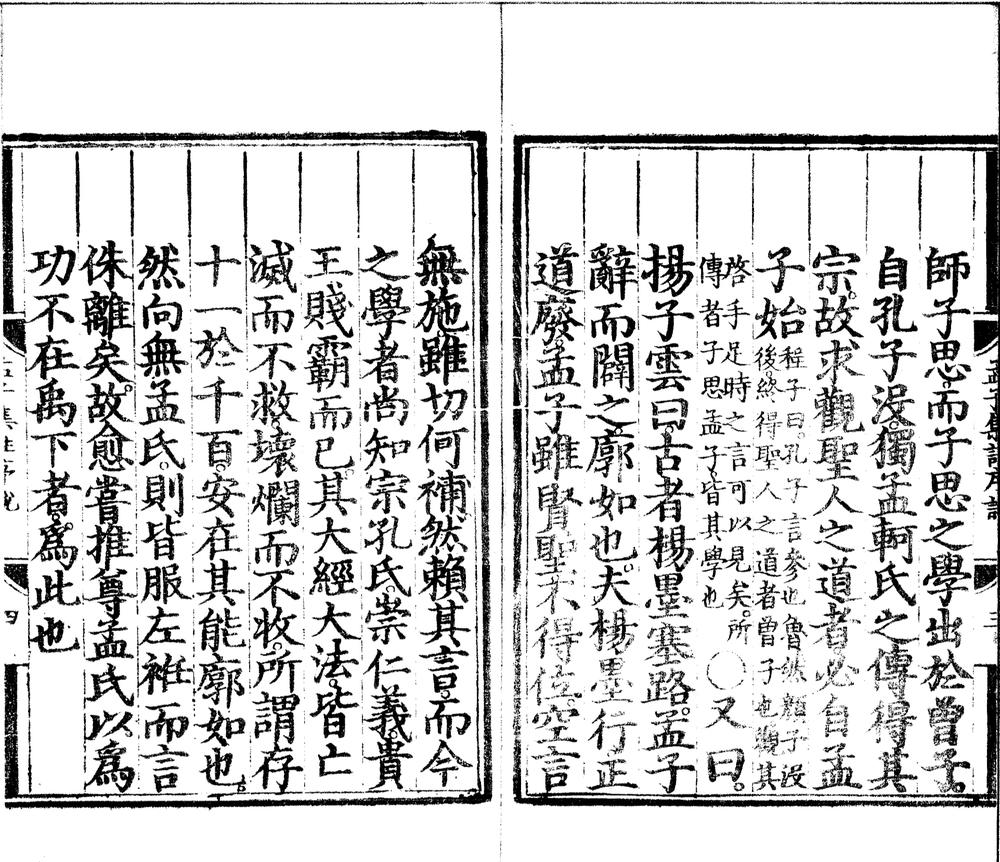 師子思。而子思之學出於曾子。
自孔子沒。獨孟軻氏之傳得其
宗。故求觀聖人之道者必自孟
子始程子曰。孔子言參也魯。然顏子沒
後。終得聖人之道者。曾子也。觀其
啓手足時之言。可以見矣。所
傳者子思孟子。皆其學也○又曰。
揚子雲曰。古者楊墨塞路。孟子
辭而闢之。廓如也。夫楊墨行。正
道廢。孟子雖賢聖。不得位。空言
無施。雖切何補。然賴其言。而今
之學者尚知宗孔氏。崇仁義。貴
王賤霸而已。其大經大法。皆亡
滅而不救。壞爛而不收。所謂存
十一於千百。安在其能廓如也。
然向無孟氏。則皆服左衽而言
侏離矣。故愈嘗推尊孟氏以爲
功不在禹下者。爲此也
孟子集註序說
三
四